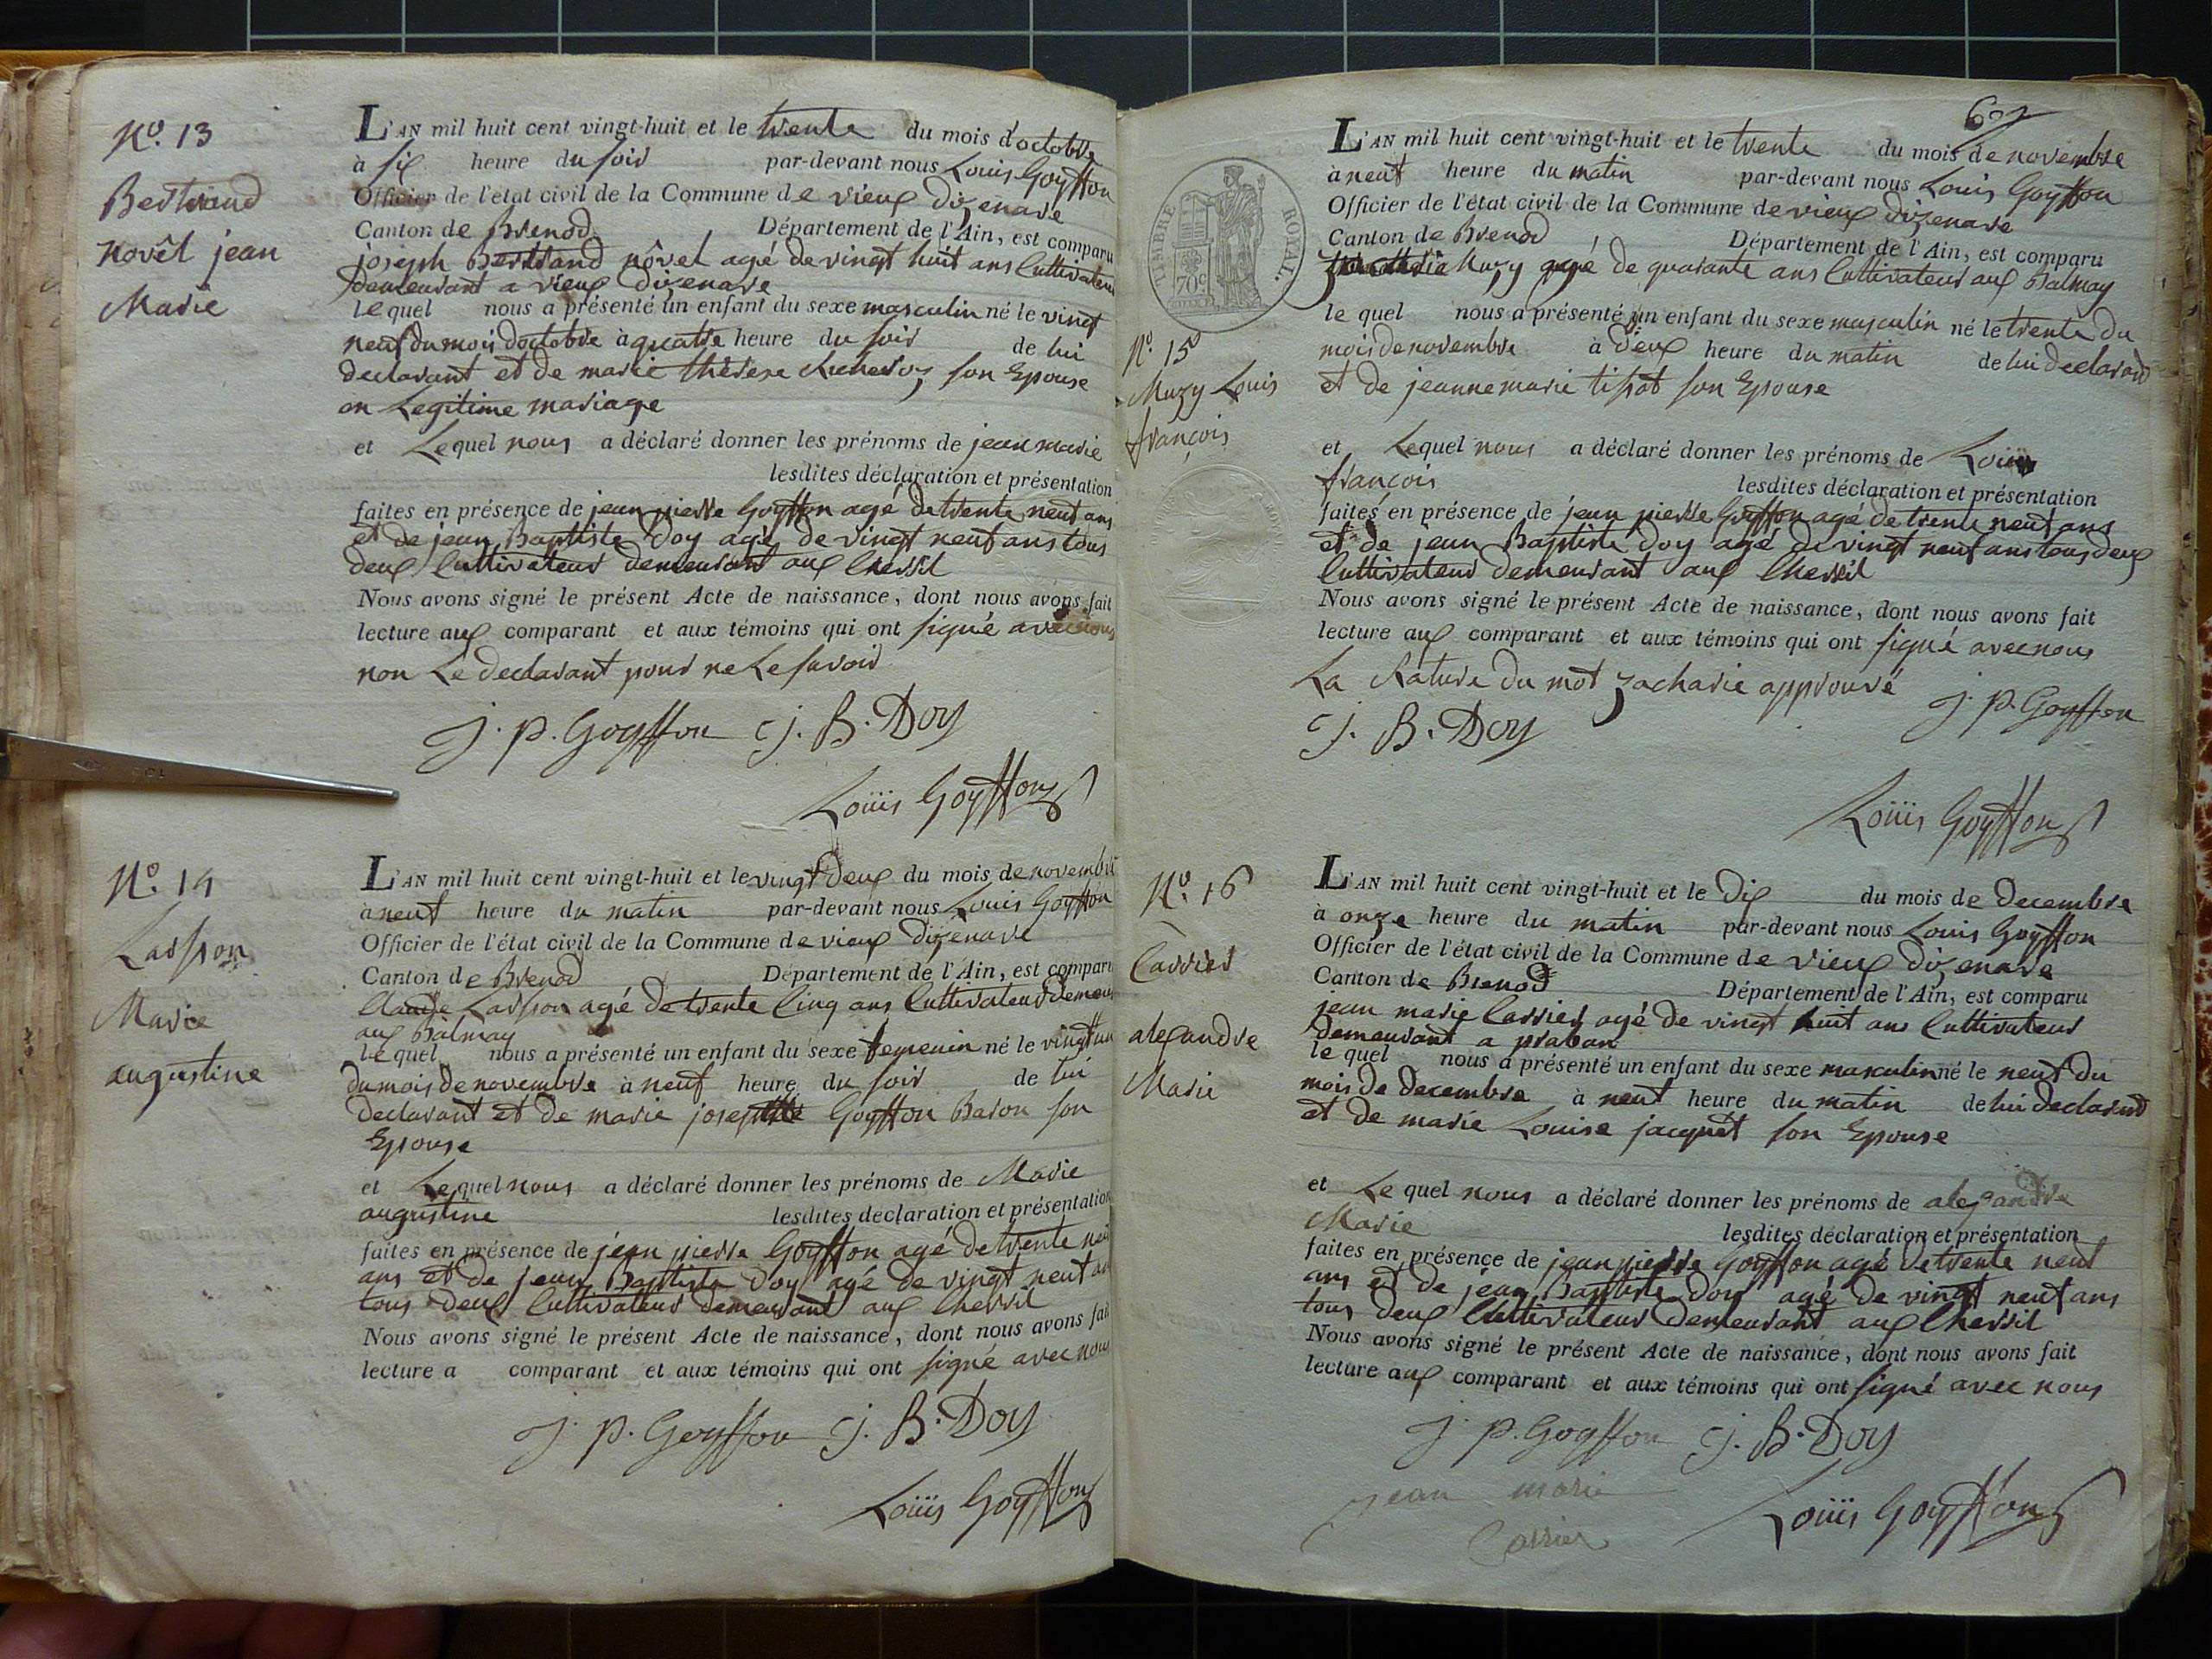 N.o 13
Bertrand
novêl jean
Marie
L'AN mil huit cent vingt-huit et le trente du mois d'octobre
à six heure du soir par-devant nous Louis Goyffon
Officier de l'état civil de la Commune de vieux dizenave
Canton de Brenod Département de l'Ain, est comparu
joseph Bertrand nôvel agé de vingt huit ans Cultivateur
demeurant a vieux dizenave
le quel nous a présenté un enfant du sexe masculin né le vingt
neuf du mois doctobre à quatre heure du soir de lui
declarant et de marie thérèse son Epouse
en Legitime mariage
et Lequel nous a déclaré donner les prénoms de jean marie
lesdites déclaration et présentation
faites en présence de jean pierre Goyffon agé de trente neuf ans
et de jean Baptiste Doy agé de vingt neuf ans tous
deux Cultivateur demeurant aux Chersil
Nous avons signé le présent Acte de naissance, dont nous avons fait
lecture aux comparant et aux témoins qui ont signé avec nous
non Le declarant pour ne Le savoir
J. P. Goyffon J. B. Doy
Loüis Goyffon
N.o 14
Lasson
Marie
augustine
L'AN mil huit cent vingt-huit et le vingt deux du mois de novembre
à neuf heure du matin par-devant nous Louis Goyffon
Officier de l'état civil de la Commune de vieux dizenave
Canton de Brenod Département de l'Ain, est comparu
Claude Lasson agé de trente Cinq ans Cultivateur demeu
aux Balmay
le quel nous a présenté un enfant du sexe femenin né le vingt un
du mois de novembre à neuf heure du soir de lui
declarant et de marie josephte Goyffon Baron son
Epouse
et Le quel nous a déclaré donner les prénoms de Marie
augustine lesdites déclaration et présentation
faites en présence de jean pierre Goyffon agé de trente neuf
ans et de jean Baptiste Doy agé de vingt neuf ans
tous deux Cultivateur demeurant aux Chersil
Nous avons signé le présent Acte de naissance, dont nous avons fait
lecture a comparant et aux témoins qui ont signé avec nous
J. P. Goyffon J. B. Doy
Loüis Goyffon
TIMBRE ROYAL.
70c
N.o 15
Muzy Louis
françois
L'AN mil huit cent vingt-huit et le trente du mois de novembre
à neuf heure du matin par-devant nous Louis Goyffon
Officier de l'état civil de la Commune de vieux dizenave
Canton de Brenod Département de l'Ain, est comparu
Zacharie Muzy agé de quarante ans Cultivateur aux Balmay
le quel nous a présenté un enfant du sexe masculin né le trente du
mois de novembre à deux heure du matin de lui declarant
et de jeanne marie tissot son Epouse
et Lequel nous a déclaré donner les prénoms de Loüis
françois lesdites déclaration et présentation
faites en présence de jean pierre Goyffon agé de trente neuf ans
et de jean Baptiste Doy agé de vingt neuf ans tous deux
Cultivateur demeurant aux Chersil
Nous avons signé le présent Acte de naissance, dont nous avons fait
lecture aux comparant et aux témoins qui ont signé avec nous
La Rature du mot zacharie approuvé J. P. Goyffon
J. B. Doy
Loüis Goyffon
N.o 16
Carrier
alexandre
Marie
L'AN mil huit cent vingt-huit et le dix du mois de decembre
à onze heure du matin par-devant nous Louis Goyffon
Officier de l'état civil de la Commune de vieux dizenave
Canton de Brenod Département de l'Ain, est comparu
jean marie Carrier agé de vingt huit ans Cultivateur
demeurant a praban
le quel nous a présenté un enfant du sexe masculin né le neuf du
mois de decembre à neuf heure du matin de lui declarant
et de marie Louise jacquét son Epouse
et Le quel nous a déclaré donner les prénoms de alexandre
Marie lesdites déclaration et présentation
faites en présence de jean pierre Goyffon agé de trente neuf
ans et de jean Baptiste Doy agé de vingt neuf ans
tous deux Cultivateur demeurant aux Chersil
Nous avons signé le présent Acte de naissance, dont nous avons fait
lecture aux comparant et aux témoins qui ont signé avec nous
J. P. Goyffon J. B. Doy
jean marie
Carrier Loüis Goyffon